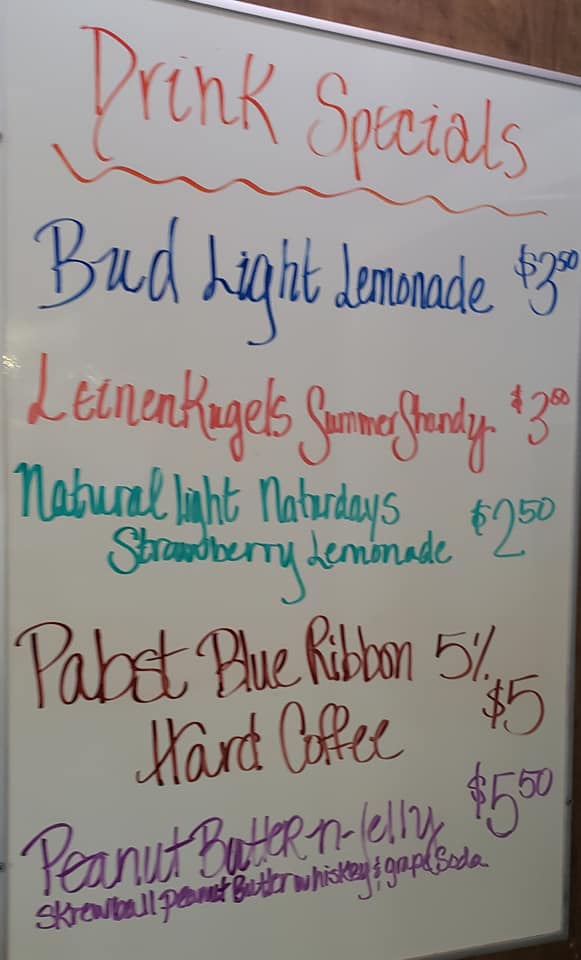 Drink Specials
Bud Light Lemonade $3.50
Leinenkugels Summer Shandy $3.00
Natural Light Naturdays
Strawberry Lemonade $2.50
Pabst Blue Ribbon 5%
Hard Coffee $5
Peanut Butter-n-Jelly $5.50
Skrewball peanut Butter whiskey & grape Soda